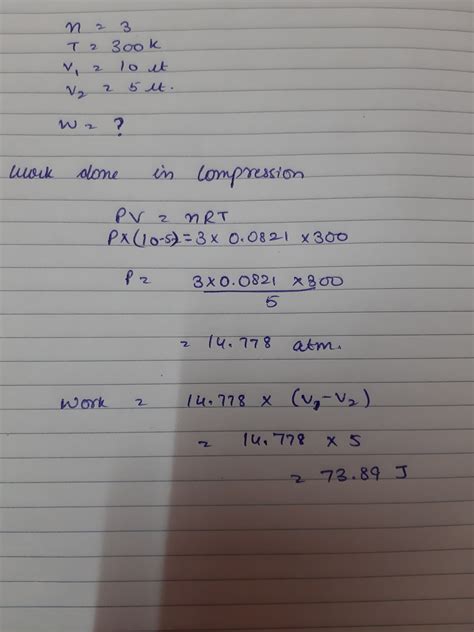 n = 3
T = 300 k
V₁ = 10 lt
V₂ = 5 lt.
W = ?
Work done in compression
PV = nRT
P×(10-5) = 3 × 0.0821 × 300
P = 3×0.0821 ×300
5
= 14.778 atm.
Work = 14.778 × (V₁-V₂)
= 14.778 × 5
= 73.89 J